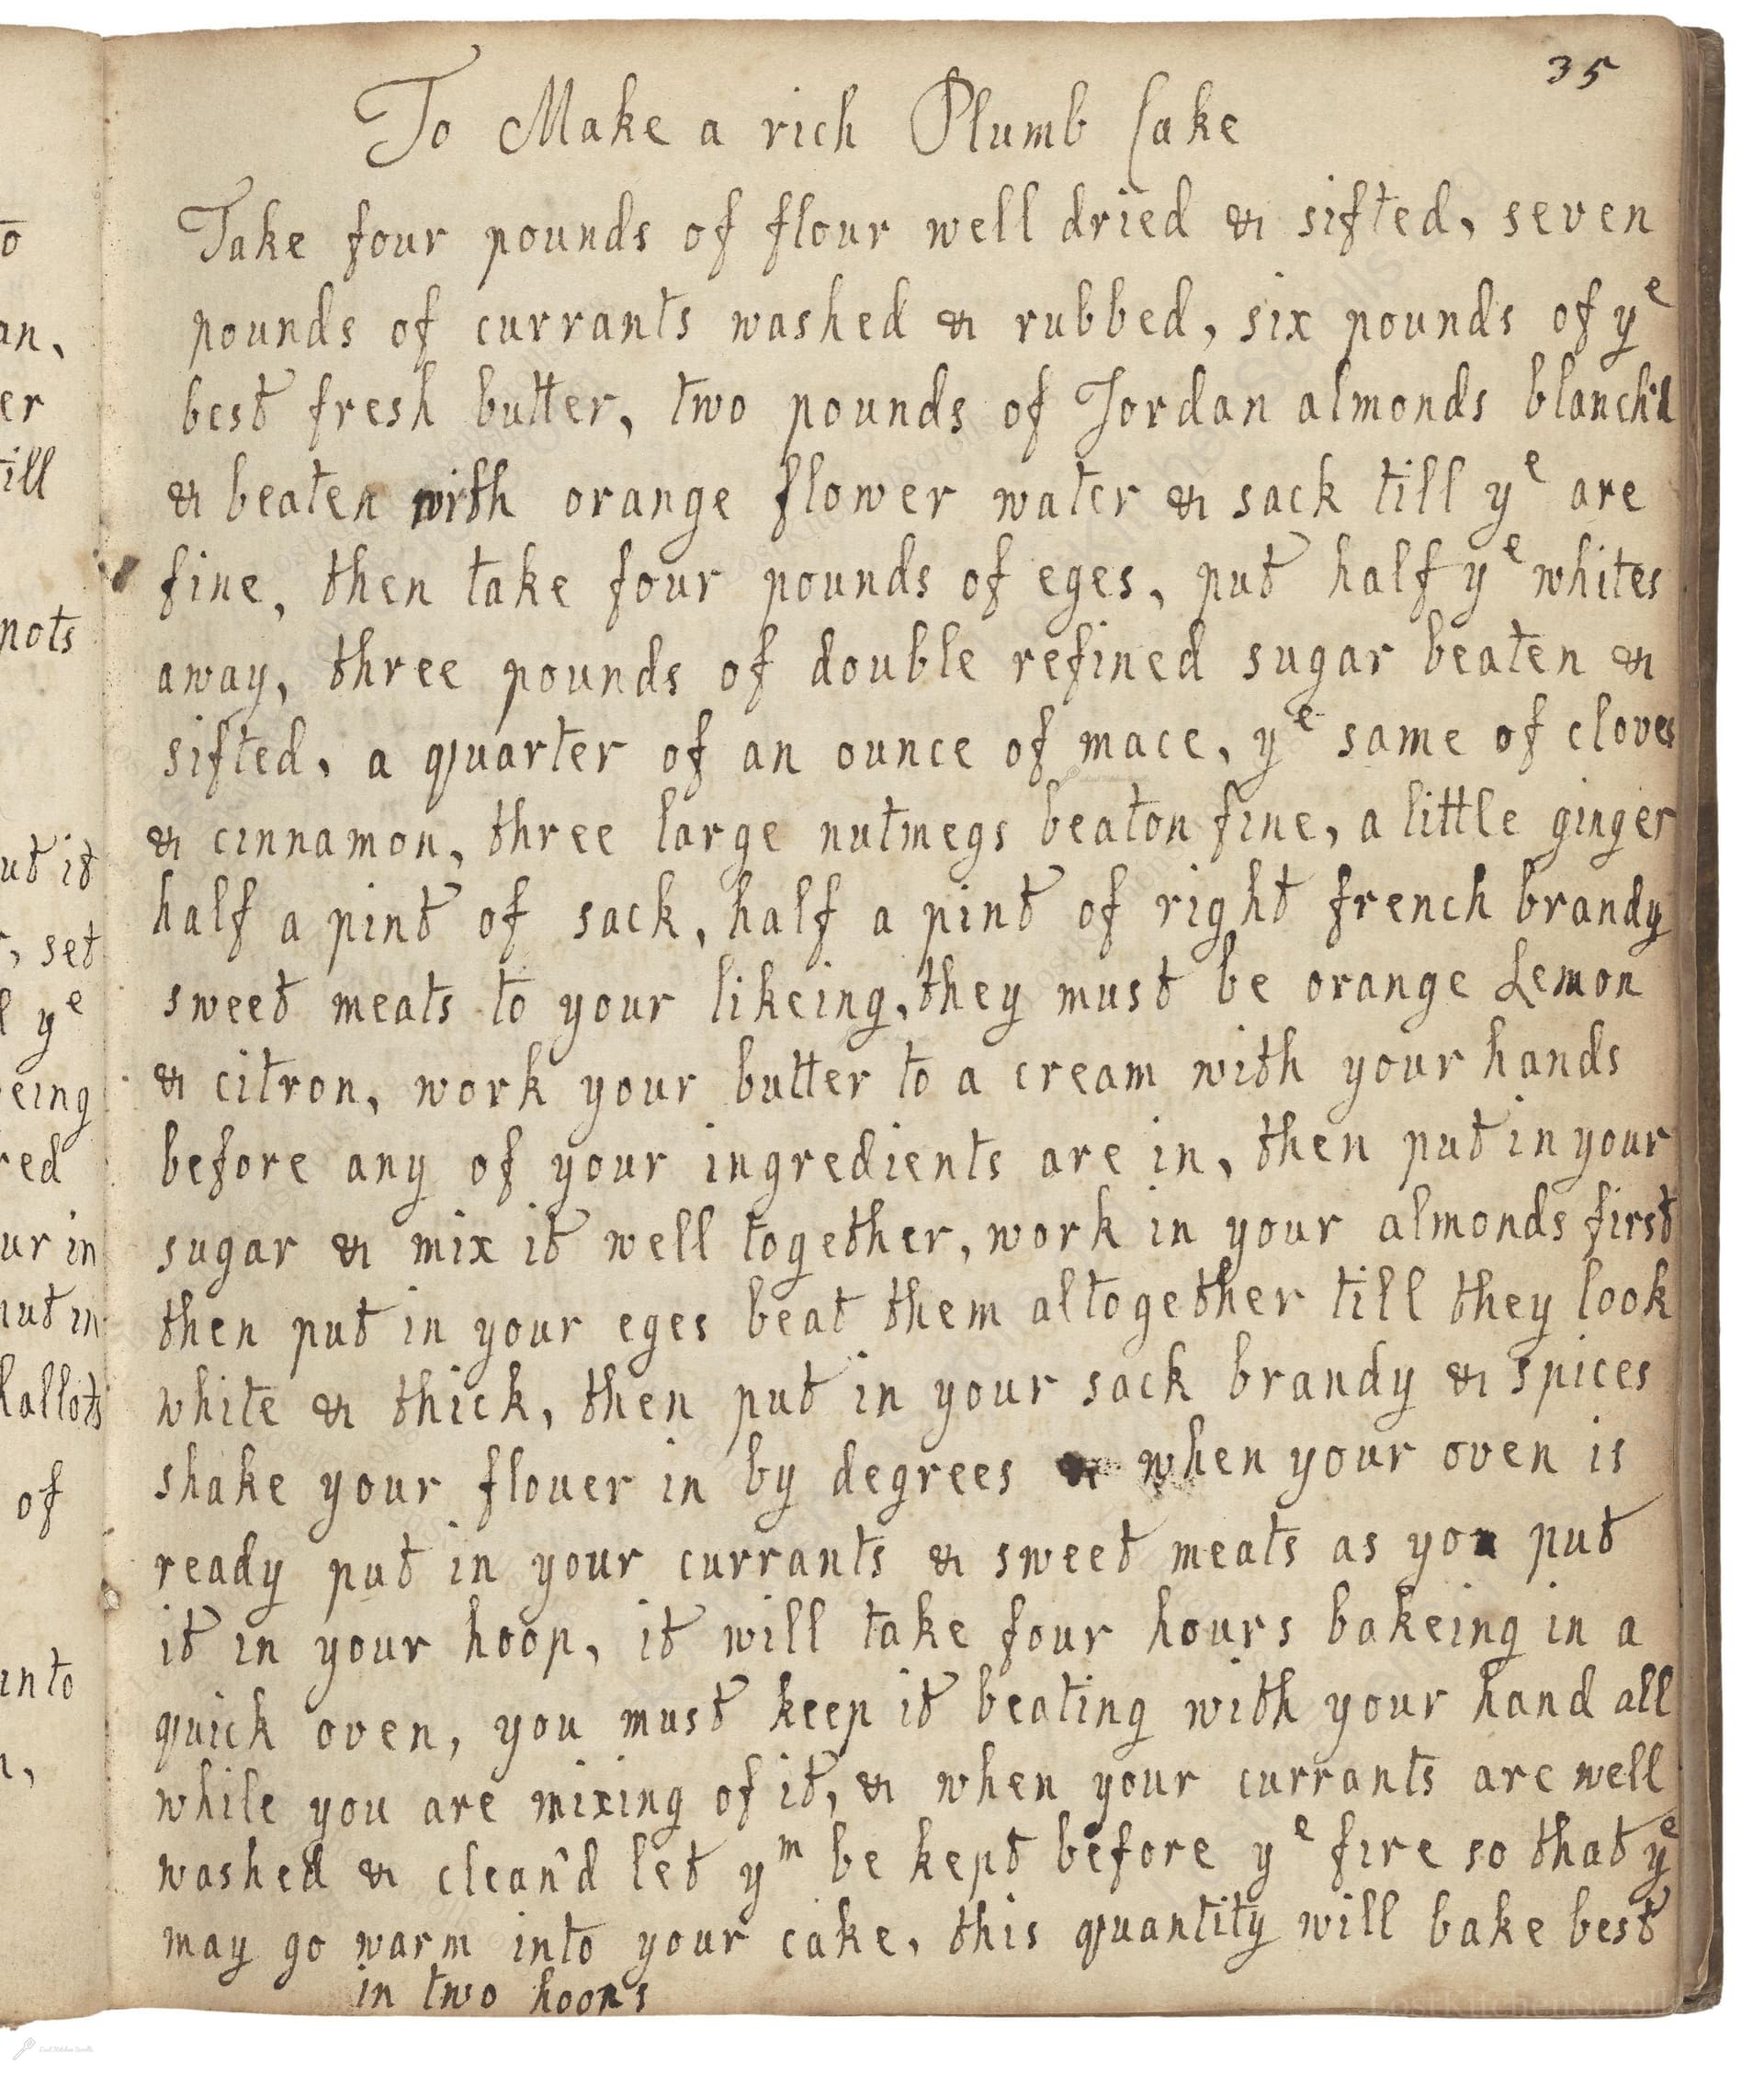 35
To Make a rich Plumb Cake
Take four pounds of flour well dried & sifted, seven
pounds of currants washed & rubbed, six pounds of yᵉ
best fresh butter, two pounds of Jordan almonds blanch'd
& beaten with orange flower water & sack till yᵉ are
fine, then take four pounds of eges, put half yᵉ whites
away, three pounds of double refined sugar beaten &
sifted, a quarter of an ounce of mace, yᵉ same of cloves
& cinnamon, three large nutmegs beaton fine, a little ginger
half a pint of sack, half a pint of right french brandy
sweet meats to your likeing, they must be orange Lemon
& citron, work your butter to a cream with your hands
before any of your ingredients are in, then put in your
sugar & mix it well together, work in your almonds first
then put in your eges beat them altogether till they look
white & thick, then put in your sack brandy & spices
shake your flouer in by degrees & when your oven is
ready put in your currants & sweet meats as you put
it in your hoop, it will take four hours bakeing in a
quick oven, you must keep it beating with your hand all
while you are mixing of it, & when your currants are well
washed & clean'd let yᵐ be kept before yᵉ fire so that yᵉ
may go warm into your cake, this quantity will bake best
in two hoops
to
an,
er
till
pots
ut it
, set
yᵉ
eing
red
ur in
put in
hallots
of
into
LostKitchenScrolls